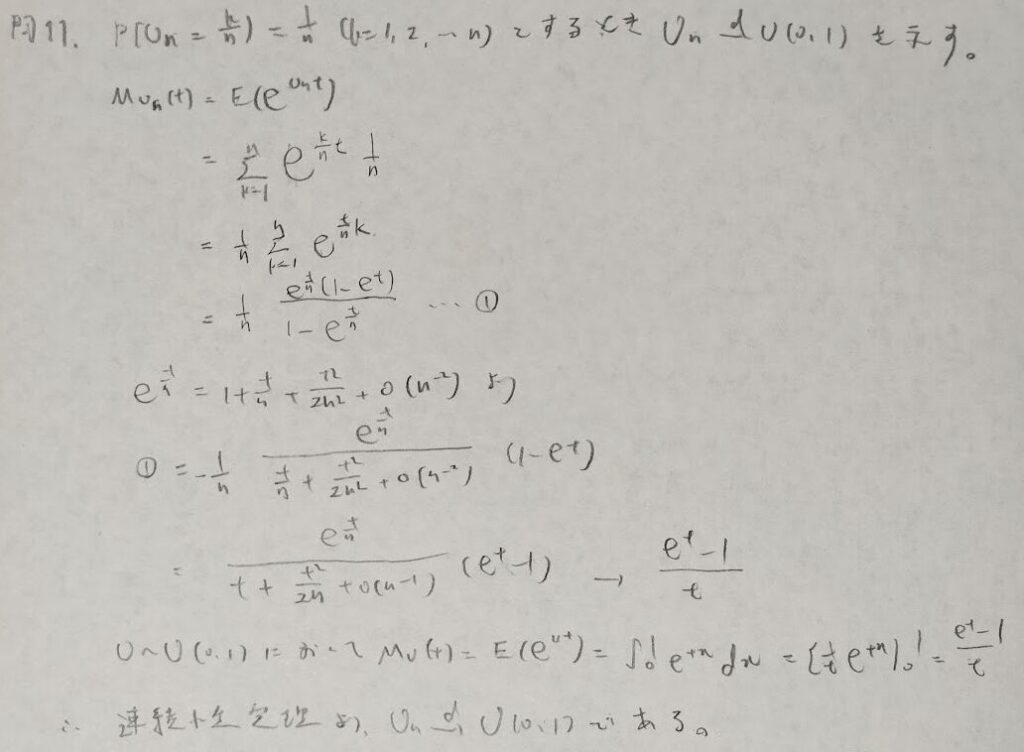 問11. P(Un = k/n) = 1/n (k=1, 2, … n) とするとき Un →d U(0,1) を示す。
MUn(t) = E(e^{Unt})
= Σ_{k=1}^{n} e^{\frac{k}{n}t} 1/n
= 1/n Σ_{k=1}^{n} e^{\frac{t}{n}k}
= 1/n \frac{e^{\frac{t}{n}}(1-e^t)}{1-e^{\frac{t}{n}}} … ①
e^{\frac{t}{n}} = 1 + \frac{t}{n} + \frac{t^2}{2n^2} + o(n^{-2}) より
① = -\frac{1}{n} \frac{e^{\frac{t}{n}}}{\frac{t}{n} + \frac{t^2}{2n^2} + o(n^{-2})} (1-e^t)
= \frac{e^{\frac{t}{n}}}{t + \frac{t^2}{2n} + o(n^{-1})} (e^t-1) → \frac{e^t-1}{t}
U~U(0,1) において MU(t) = E(e^{Ut}) = ∫_0^1 e^{tx} dx = [\frac{1}{t} e^{tx}]_0^1 = \frac{e^t-1}{t}
∴ 連続性定理より、Un →d U(0,1) である。